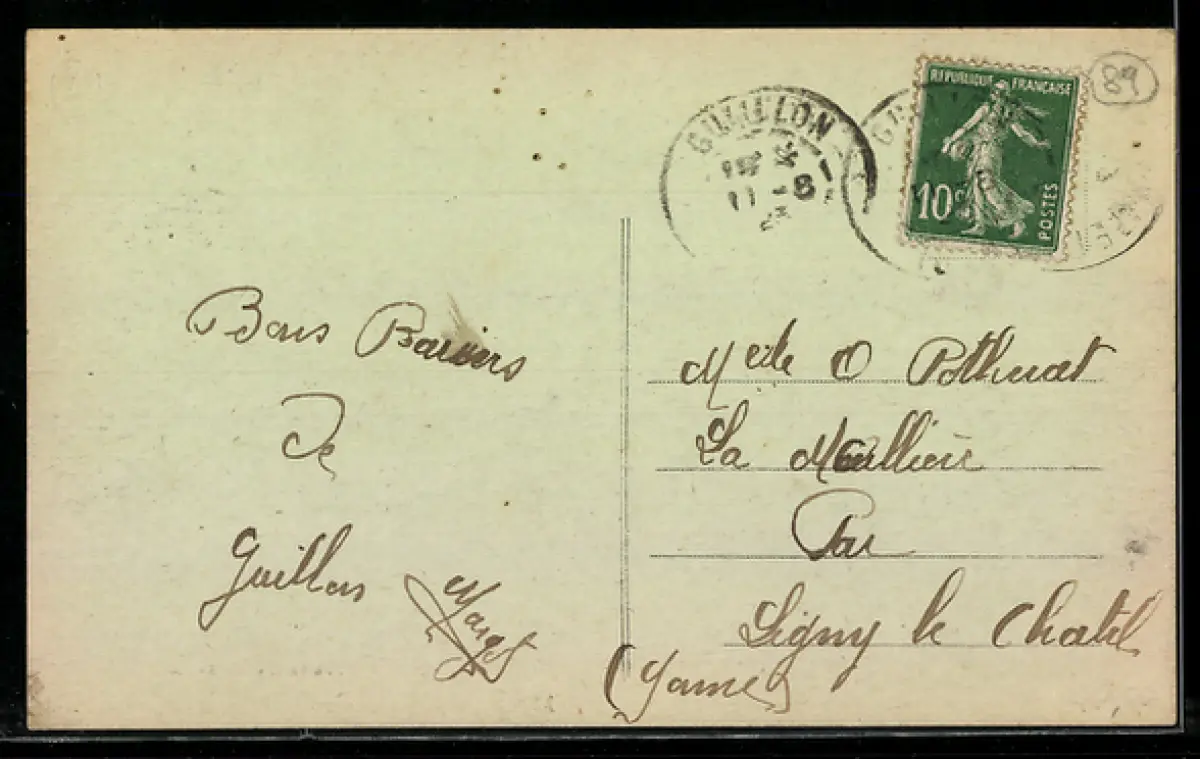 GUILLON
11 - 8
RÉPUBLIQUE FRANÇAISE
10c
POSTES
89
Bons Baisers
de
Guillon
Margot
Melle O Potherat
La Mouillère
Par
Ligny le Chatel
(Yonne)